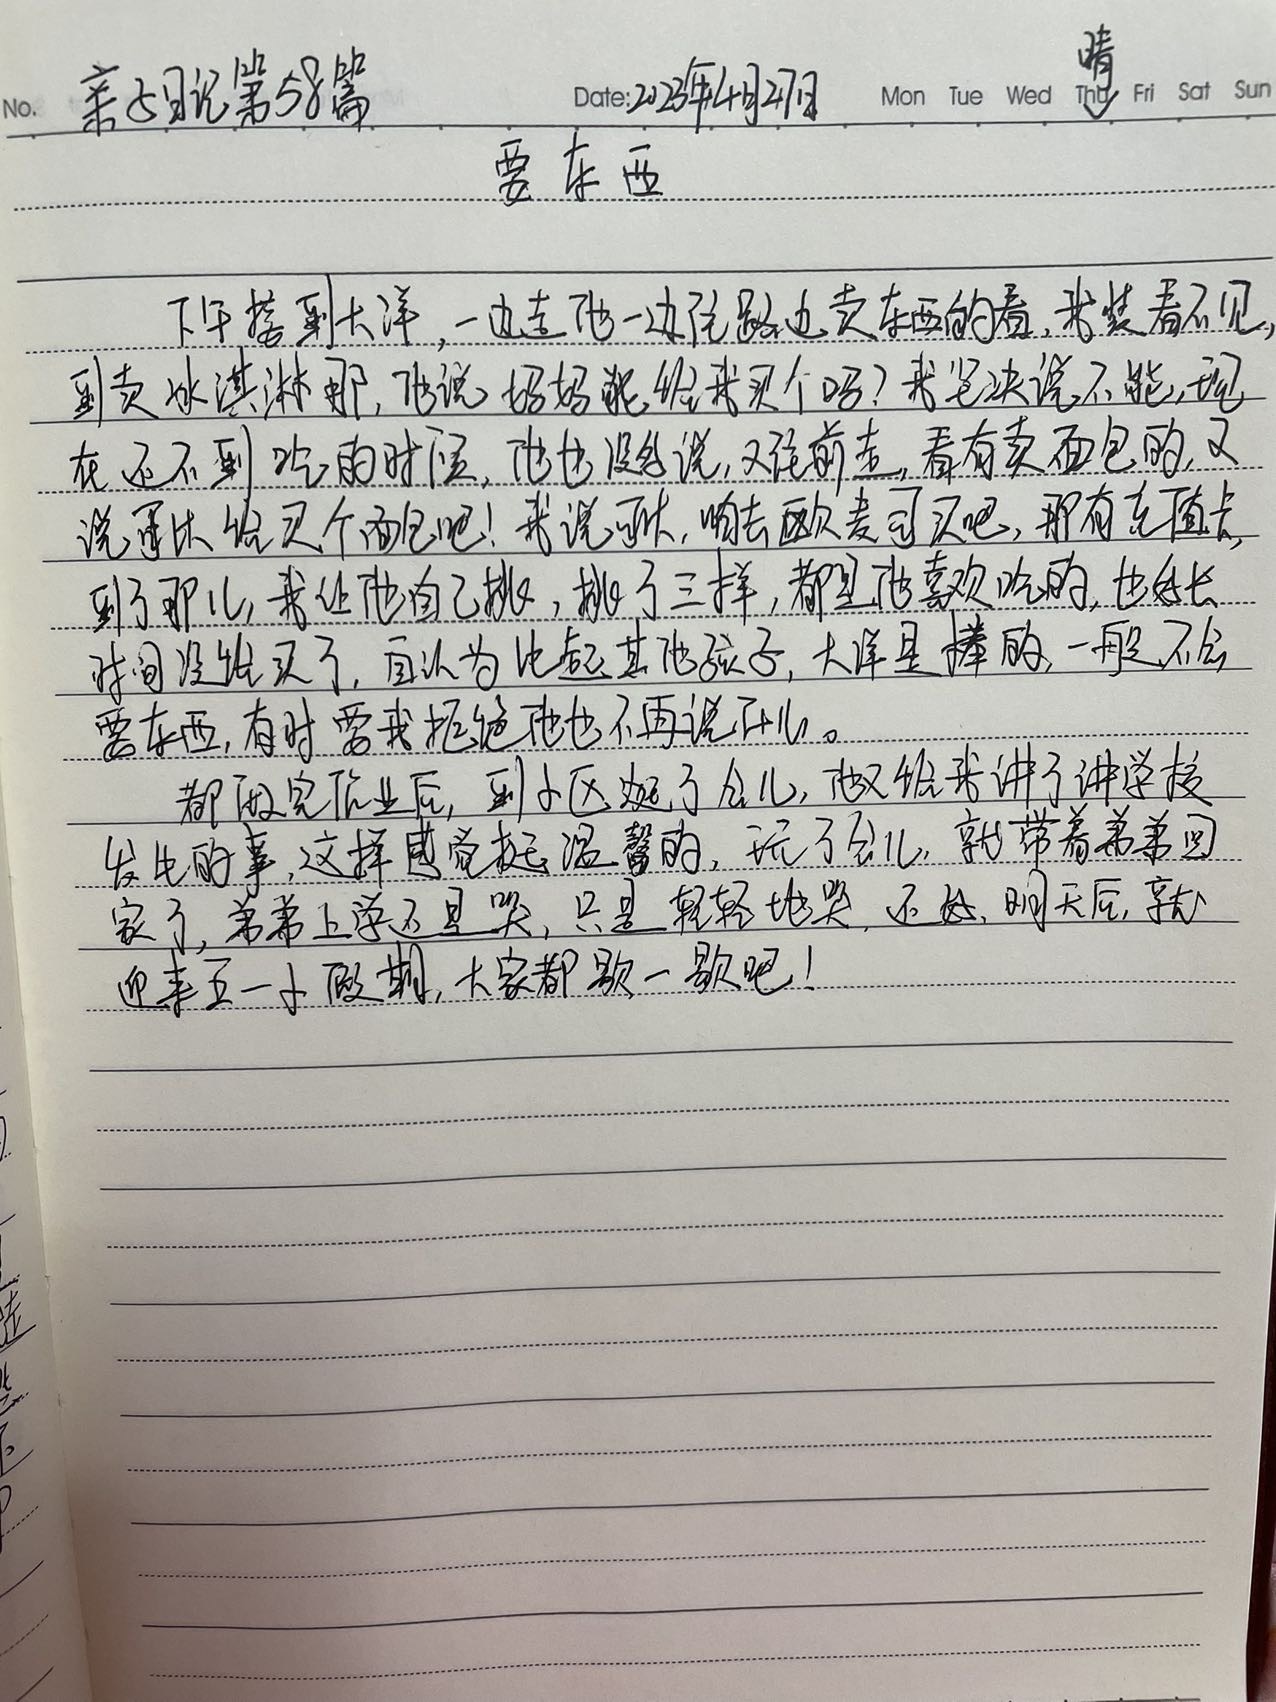 No. 亲子日记第58篇 Date:2023年4月27日 Mon Tue Wed Thu Fri Sat Sun
晴
要东西
下午接到大洋，一边走他一边往路边卖东西的看，我装看不见，
到卖冰淇淋那，他说妈妈能给我买个吗？我坚决说不能，现
在还不到吃的时候，他也没再说，又往前走，看有卖面包的，又
说要么给买个面包吧！我说可以，咱去欧麦可买吧，那有充值卡，
到了那儿，我让他自己挑，挑了三样，都是他喜欢吃的，也好长
时间没给买了，自认为比起其他孩子，大洋是棒的，一般不会
要东西，有时要我拒绝他也不再说什么。
都做完作业后，到小区玩了会儿，他又给我讲了讲学校
发生的事，这样感觉挺温馨的，玩了会儿，就带着弟弟回
家了，弟弟上学不是哭，只是轻轻地哭，还好，明天后，就
迎来五一小假期，大家都歇一歇吧！